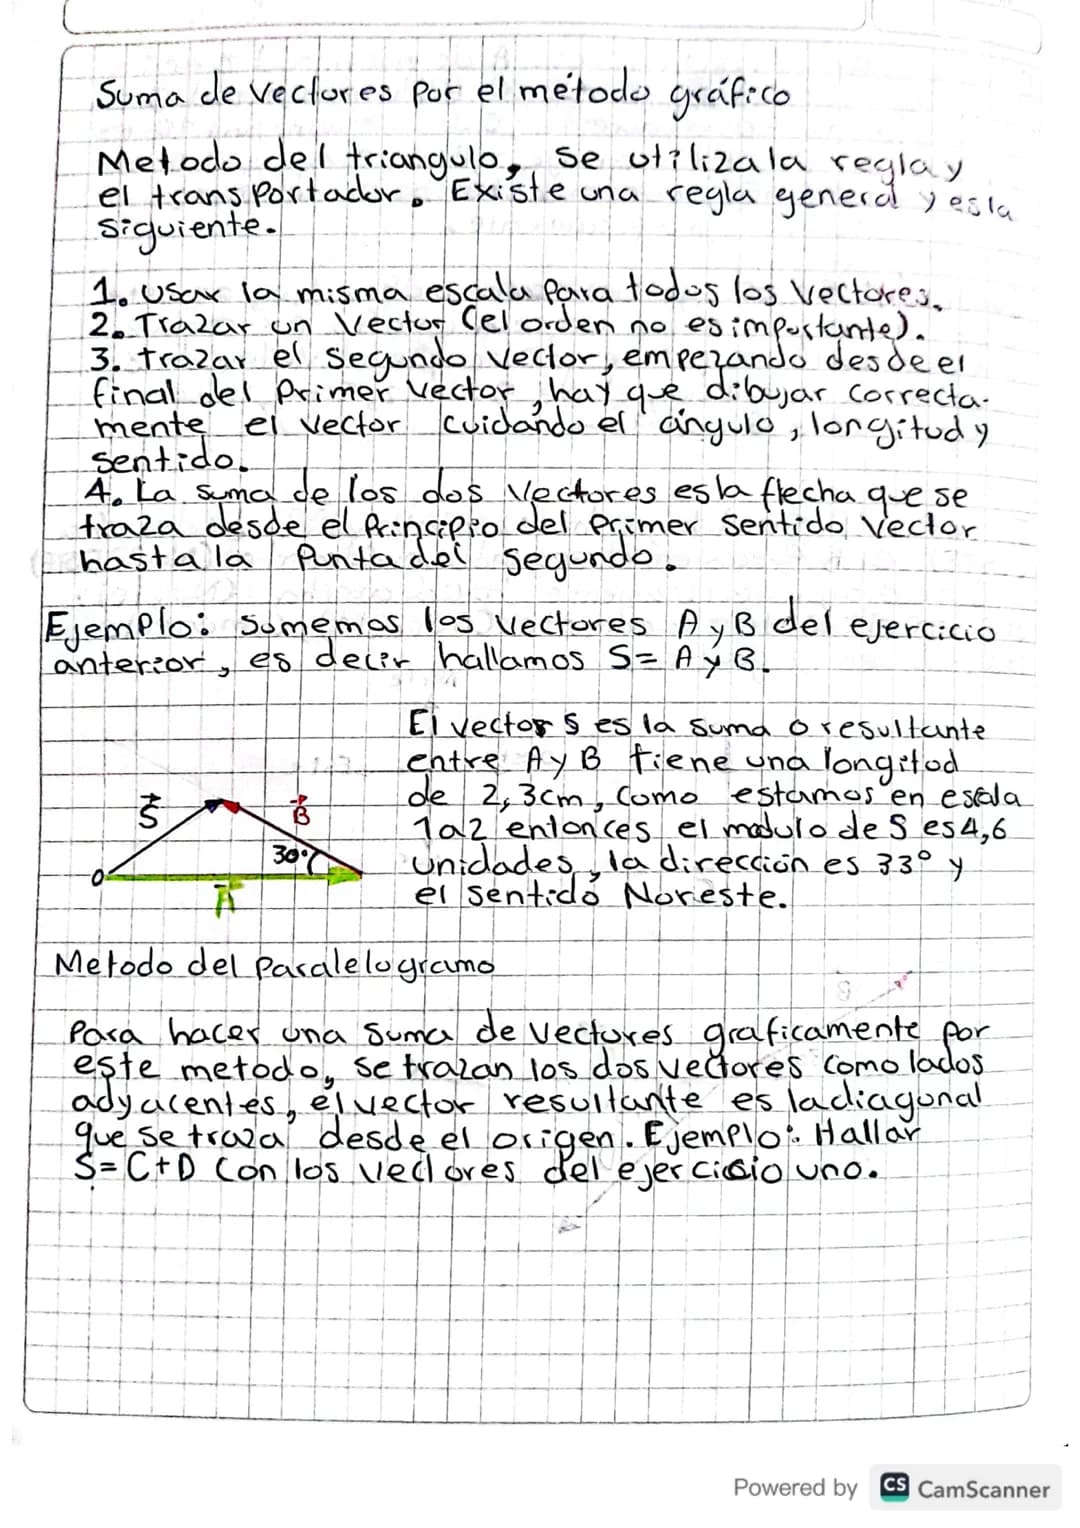 Suma de vectores por el método gráfico
Metodo del triangulo, se utiliza la regla y
el transportador. Existe una regla general y es la
siguiente.
1. Usar la misma escala para todos los vectores.
2. Trazar un Vector (el orden no es importante).
3. trazar el segundo vector, empezando desde el
final del Primer vector, hay que dibujar correcta-
mente el vector cuidando el ángulo, longitud y
sentido.
4. La suma de los dos Vectores es la flecha que se
traza desde el Principio del Primer Sentido Vector
hasta la Punta del segundo.
Ejemplo: Sumemos los vectores A y B del ejercicio
anterior, es decir hallamos S= A y B.
El vector S es la suma o resultante
entre A y B tiene una longitud
de 2,3cm, como estamos en escala
1 a 2 entonces el modulo de S es 4,6
unidades, la dirección es 33° y
el sentido Noreste.
S
B
30°
O
A
Metodo del Paralelogramo
Para hacer una suma de vectores graficamente por
este metodo, se trazan los dos vectores como lados
adyacentes, el vector resultante es la diagonal
que se traza desde el origen. Ejemplo: Hallar
S= C+D con los vectores del ejercicio uno.
Powered by CS CamScanner